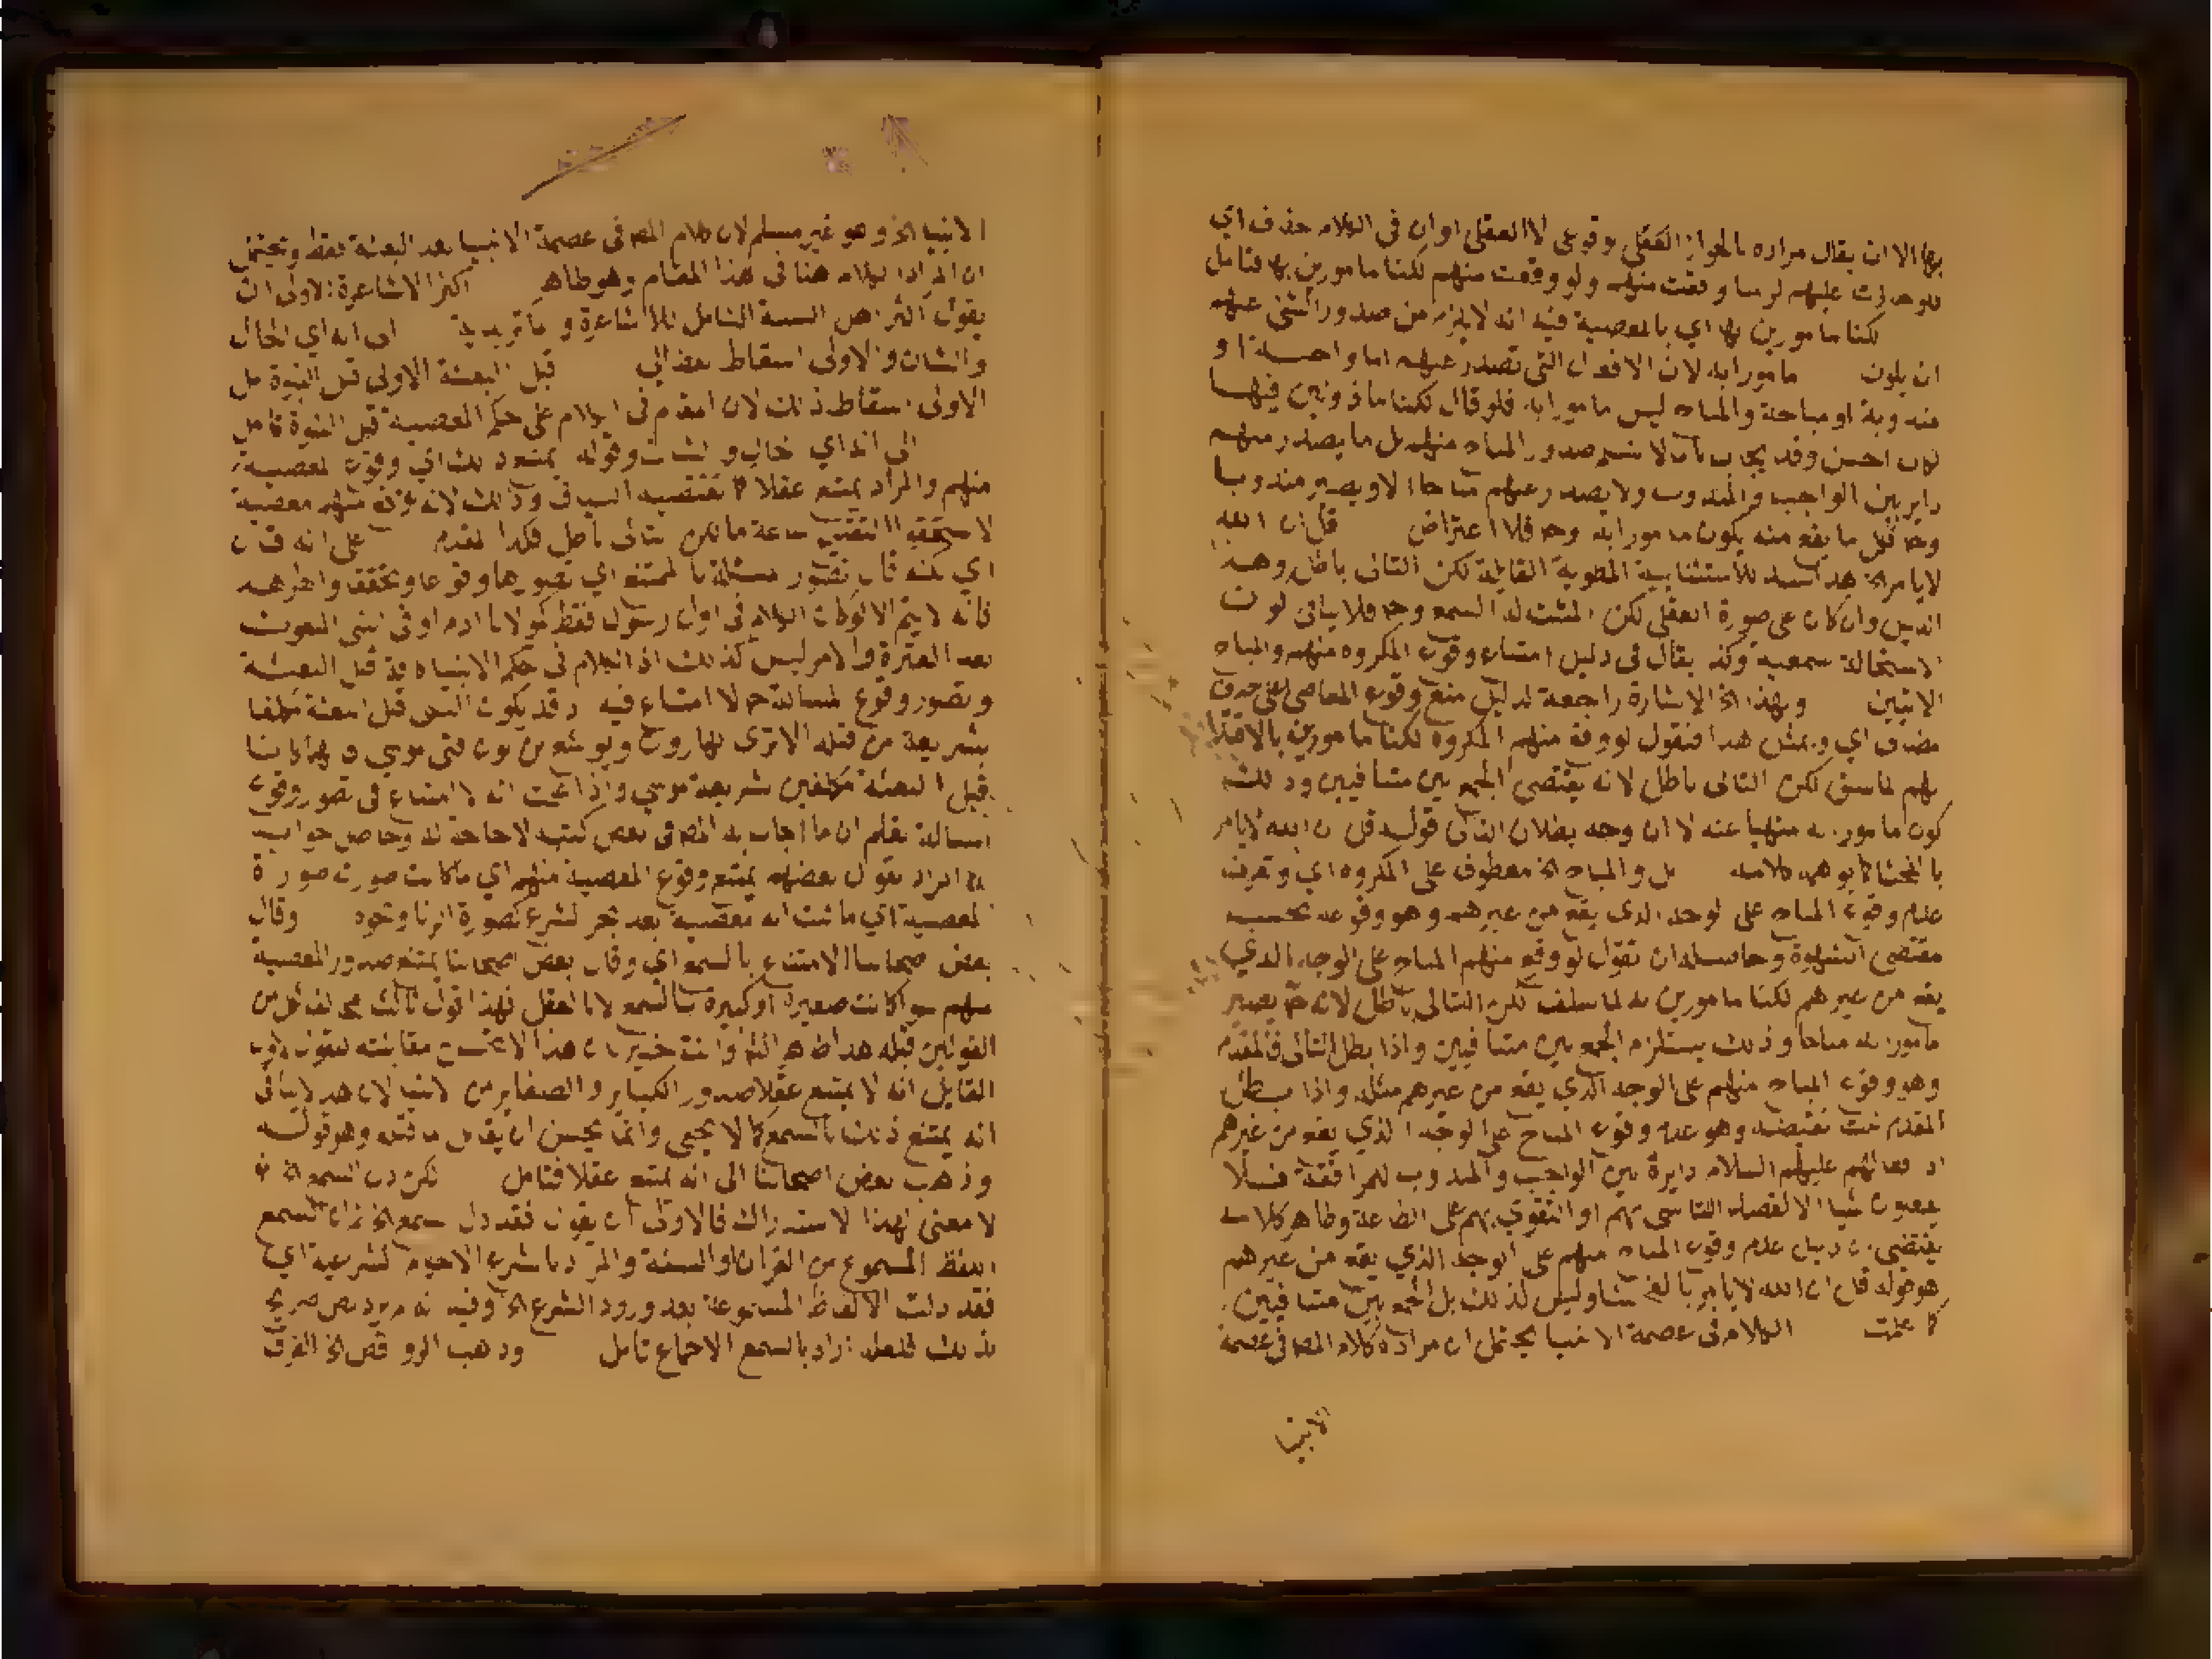 بها الا ان يقال مراده بالجواز العقلي وقوعي لا العقلي او ان في الكلام حذف اي
لوجازت عليهم لربما وقعت منهم ولو وقعت منهم لكنا مامورين بها فتامل
لكنا مامورين بها اي بالمعصية فيه انه لا يلزم من صدور الشئ عنهم
ان يكون مامورا به لان الافعال التي تصدر عنهم اما واجبة او
مندوبة او مباحة والمباح ليس مامورا به فلو قال لكنا ماذونين فيها
لكان احسن وقد يجاب بانا لا نسلم صدور المباح منهم بل ما يصدر منهم
داير بين الواجب والمندوب ولا يصدر عنهم مباحا الا ويصير مندوبا
وح فكل ما يقع منه يكون مامورا به وح فلا اعتراض قل ان الله
لا يامر الخ هذا سند للاستثنايية المطوية القايلة لكن التالي باطل وهذا
الدليل وان كان على صورة العقلي لكن المثبت له السمع وح فلا ينافي كون
الاستحالة سمعية وكذا يقال في دليل امتناع وقوع المكروه منهم والمباح
الاتيين وبهذا الخ الاشارة راجعة لدليل منع وقوع المعاصي على حذف
مضاف اي وبمثل هذا فنقول لو وقع منهم المكروه لكنا مامورين بالاقتدا
بهم لما سبق لكن التالي باطل لانه يقتضي الجمع بين متنافيين وذلك
كون مامور به منهيا عنه لا ان وجه بطلان التالي قوله قل ان الله لا يامر
بالفحشا كما يوهمه كلامه بل والمباح الخ معطوف على المكروه اي وتعرف
عدم وقوع المباح على الوجه الذي يقع من غيرهم وهو وقوعه بحسب
مقتضى الشهوة وحاصله ان تقول لو وقع منهم المباح على الوجه الذي
يقع من غيرهم لكنا مامورين به لما سلف لكن التالي باطل لانه ح يصير
مامور به مباحا وذلك يستلزم الجمع بين متنافيين واذا بطل التالي فالمقدم
وهو وقوع المباح منهم على الوجه الذي يقع من غيرهم مثله واذا بطل
المقدم ثبت نقيضه وهو عدم وقوع المباح على الوجه الذي يقع من غيرهم
اذ افعالهم عليهم السلام دايرة بين الواجب والمندوب فلا
يفعلون شيا الا لقصد التاسي بهم او التقوي بهم على الطاعة وظاهر كلامه
يقتضي ان دليل عدم وقوع المباح منهم على الوجه الذي يقع من غيرهم
هو قوله قل ان الله لا يامر بالفحشا وليس كذلك بل الجمع بين متنافيين
كما علمت الكلام في عصمة الانبيا يحتمل ان مراده كلام المص في عصمة
الانبيا
الانبيا الخ وهو غير مسلم لان كلام المص في عصمة الانبيا بعد البعثة فقط ويحتمل
ان المراد الكلام هنا في هذا المقام وهو ظاهر اكثر الاشاعرة الاولى ان
يقول اكثر اهل السنة الشامل للاشاعرة وماتريدية الى انه اي الحال
والشان والاولى اسقاط بعض الي قبل البعثة الاولى قبل النبوة بل
الاولى اسقاط ذلك لان المقدم في الكلام على حكم المعصية قبل النبوة تامل
الى انه اي الحال والشان وقوله يمتنع ذلك اي وقوع المعصية
منهم والمراد يمتنع عقلا كما يقتضيه السياق وذلك لانه منهم معصية
على انه قال
فانه لا يتم الا لو كان الكلام في اول رسول فقط كمولانا ادم او في النبي المبعوث
بعد الفترة والامر ليس كذلك اذ الكلام في حكم الانبيا قبل البعثة
وتصور وقوع المسالة ح لا امتناع فيه وقد يكون النبي قبل البعثة مكلفا
بشريعة من قبله الا ترى لهارون ويوشع بن نون فتى موسى كانا
قبل البعثة مكلفين بشريعة موسى واذا علمت انه لا امتناع في تصور وقوع
المسالة تعلم ان ما اجاب به المص في بعض كتبه لا حاجة له وحاصل جوابه
ان المراد بقول بعضهم يمتنع وقوع المعصية منهم اي ما كانت صورته صورة
المعصية اي ما ثبت انه معصية بعد مجئ الشرع كصورة الزنا ونحوه وقال
بعض اصحابنا الامتناع بالسمع اي وقال بعض اصحابنا يمتنع صدور المعصية
منهم سوا كانت صغيرة او كبيرة بالسمع لا بالعقل فهذا قول ثالث مخالف لكل من
القولين قبله هذا ظاهر النظم وانت خبير بان هذا لا يحسن مقابلته للقول الاول
القايل انه لا يمتنع عقلا صدور الكباير والصغاير من الانبيا لان هذا لا ينافي
انه يمتنع ذلك بالسمع كما لا يخفى وانما يحسن ان يقابل ما قبله وهو قوله
وذهب بعض اصحابنا الى انه يمتنع عقلا فتامل لكن دل السمع الخ
لا معنى لهذا الاستدراك فالاولى ان يقول فقد دل السمع السمع
اللفظ المسموع من القران او السنة والمراد بالشرع الاحكام الشرعية اي
فقد دلت الالفاظ المسموعة بعد ورود الشرع الخ وفيه انه لم يرد نص صريح
بذلك فلعله اراد بالسمع الاجماع تامل وذهب الروافض الخ الفرق